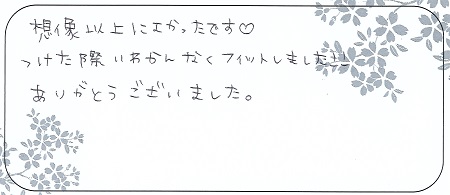 想像以上によかったです♡
つけた際いわかんなくフィットしました!!
ありがとうございました。